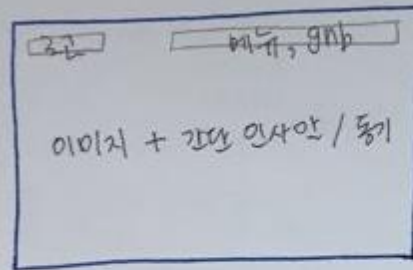 로고
메뉴, gnb
이미지 + 간단 인사말 / 동기